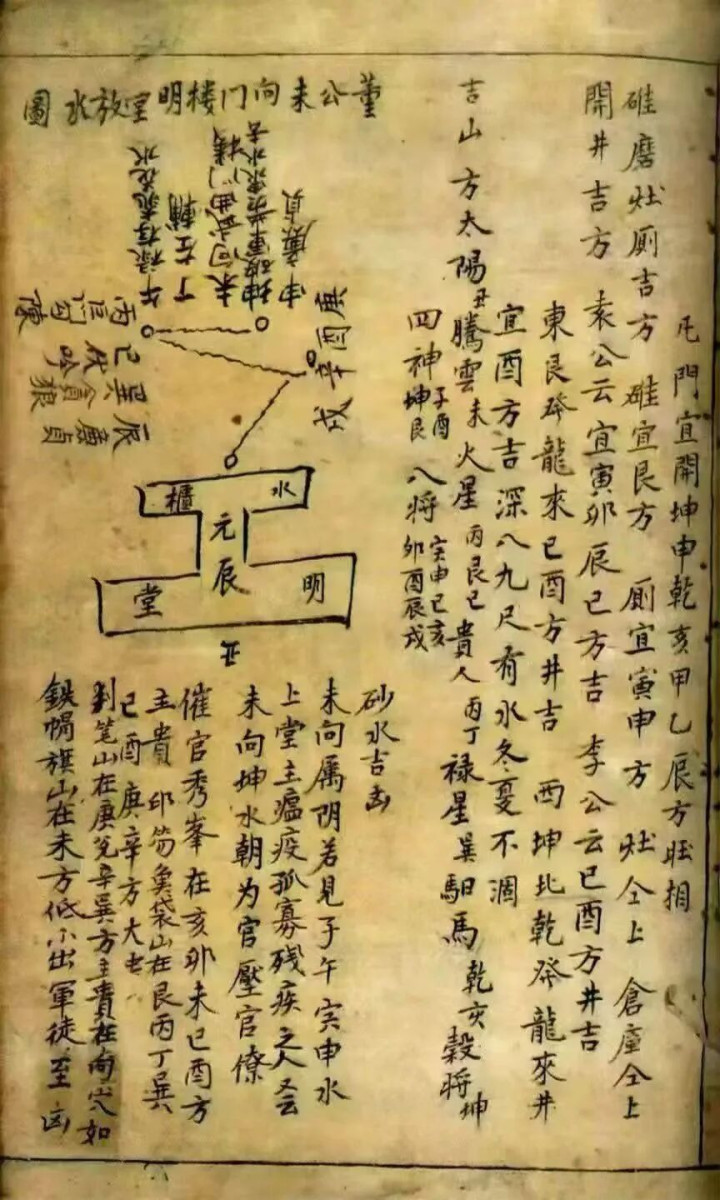 凡門宜開坤申乾亥甲乙辰方旺相
碓磨灶厠吉方 碓宜艮方 厠宜寅申方 灶仝上 倉庫仝上
開井吉方 袁公云宜寅卯辰巳方吉 李公云巳酉方井吉
東艮癸龍來巳酉方井吉 西坤北乾癸龍來井
宜酉方吉深八九尺有水冬夏不涸
吉山方太陽丑騰雲未火星丙艮巳貴人丙丁祿星巽馹馬乾亥穀將坤
四神子酉坤艮八将寅申巳亥卯酉辰戌
董公未向门楼明堂放水圖
申廉貞
坤破軍黃泉水去
未向武曲门楼
丁左輔
午祿存
丙
巳伏吟
巽貪狼
辰廉貞
戌
水櫃
元辰
明堂
丑
砂水吉凶
未向属阴若見子午寅申水
上堂主瘟疫孤寡残疾之人又云
未向坤水朝为官壓官僚
催官秀峯在亥卯未巳酉方
主貴 印笏魚袋山在艮丙丁巽
巳酉庚辛方大吉
判笔山在庚兌辛巽方主貴在向穴如
鉄帽旗山在未方低小出軍徒至凶